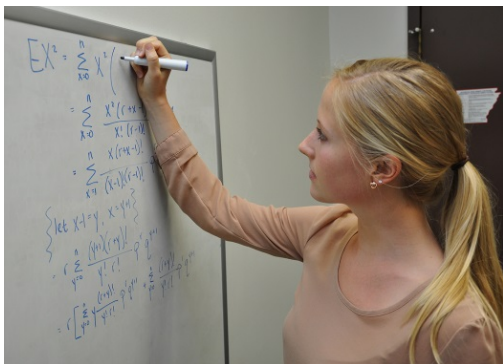 EX² = Σ x=0 n x² (
= Σ x=0 n x² (r+x-
x! (r-1)!
= Σ x=1 n x(r+x-1)!
(x-1)!(r-1)!
{let x-1=y, x=y+1}
= r Σ y=0 n (y+1)(r+y)! / y! r! p^r q^y+1
= r [ Σ y=0 n y (r+y)! / y! r! p^r q^y+1 + Σ y=0 n (r+y)! / y! r! p^r q^y+1